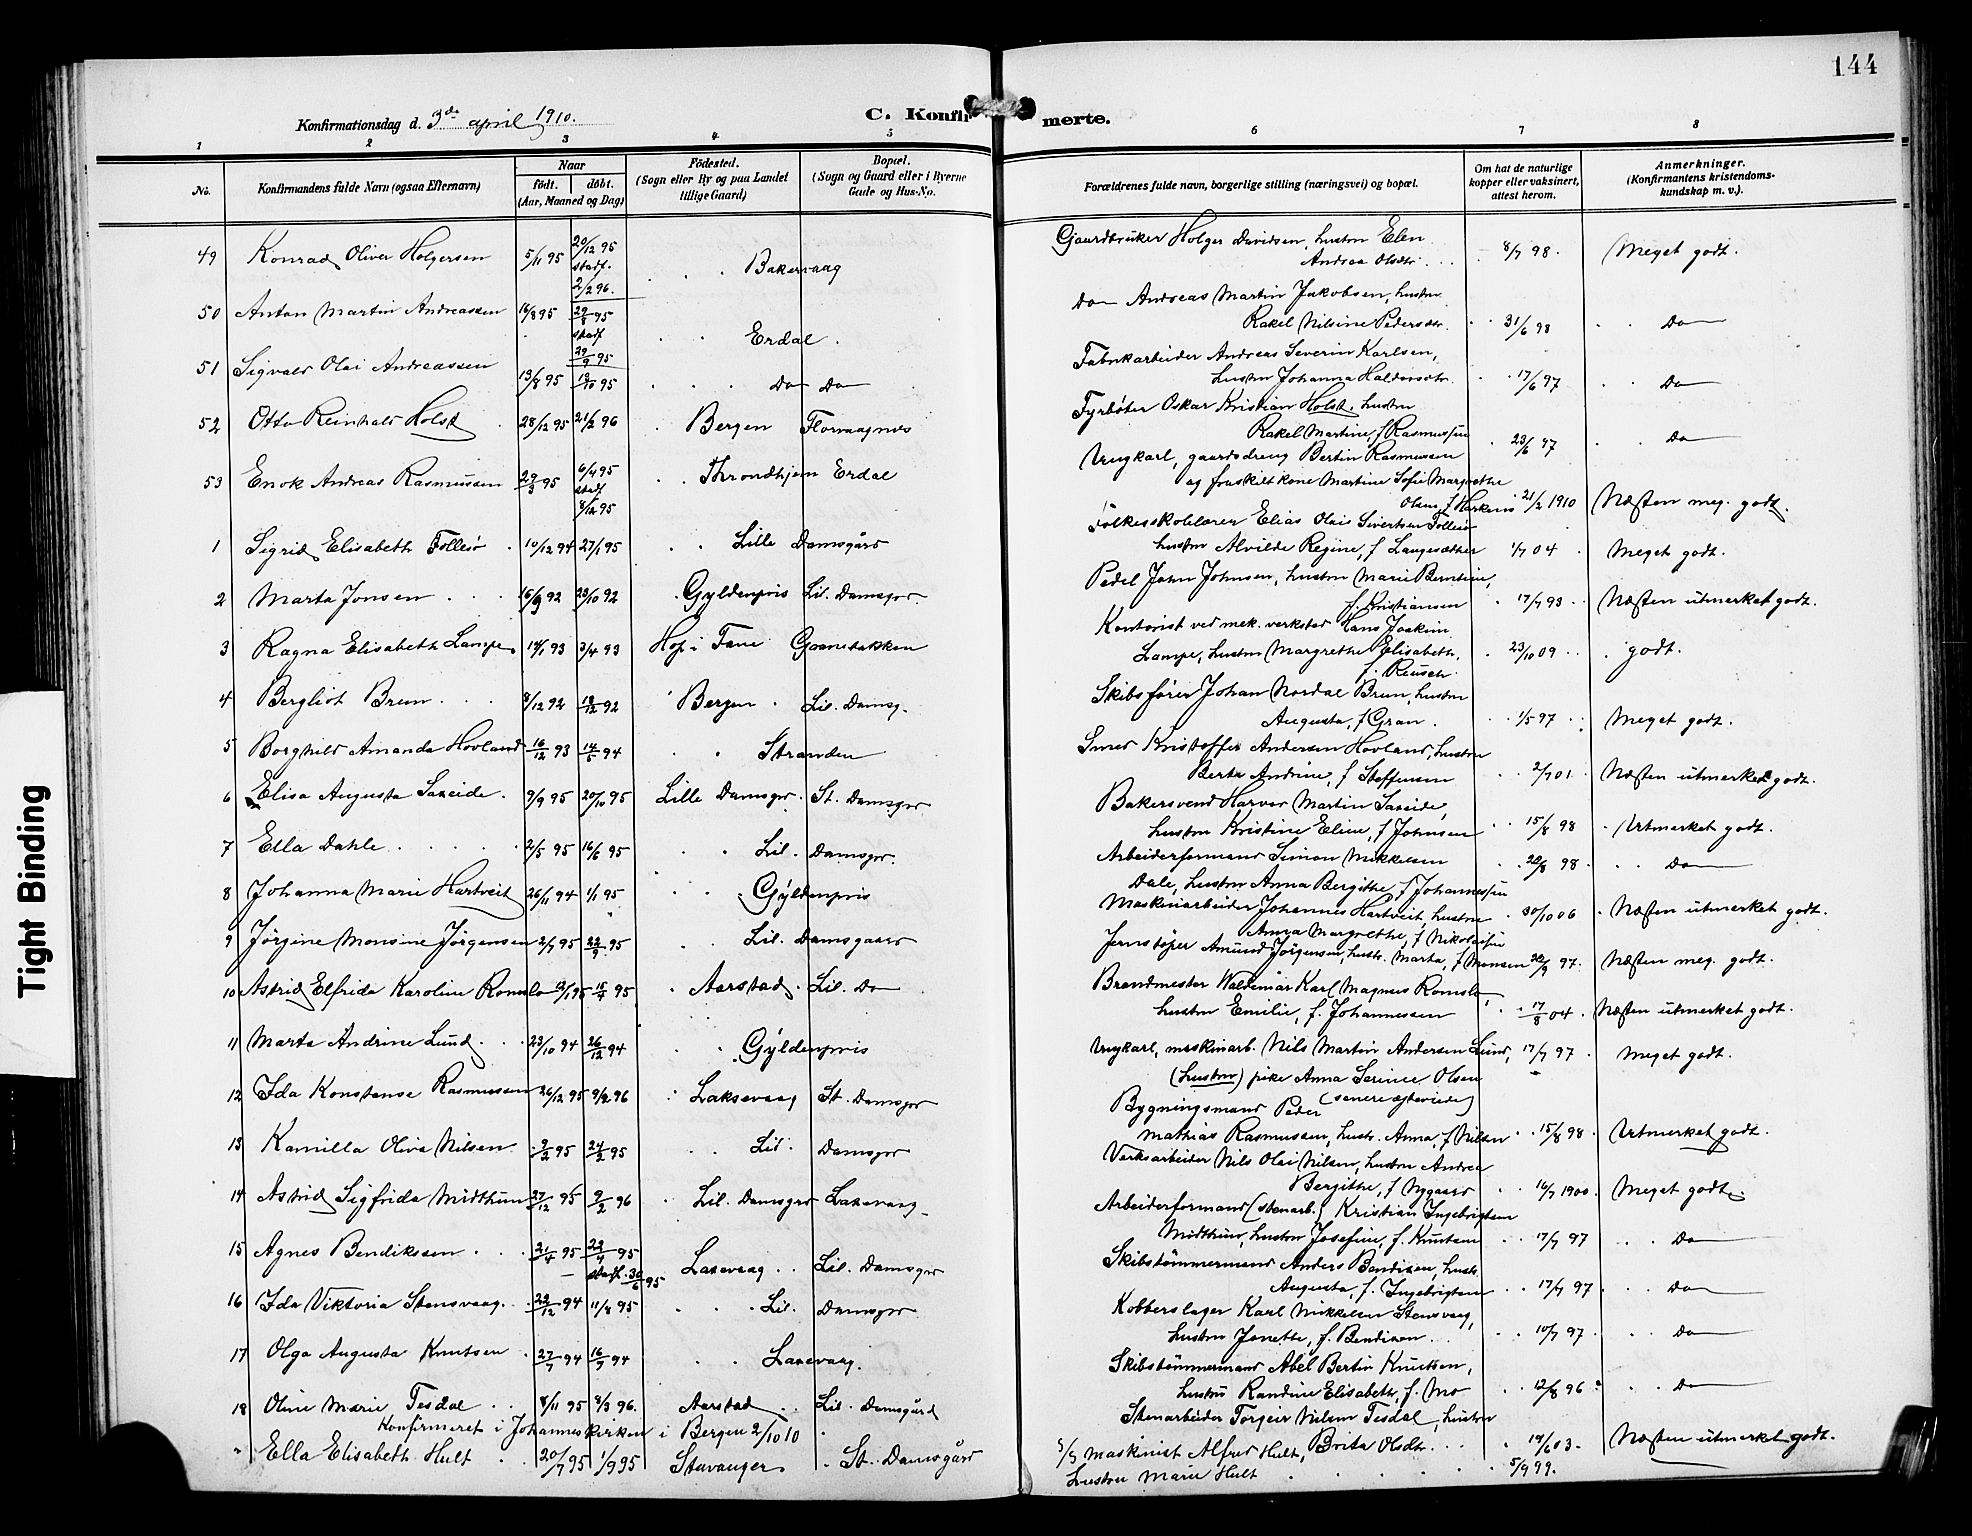 144
Konfirmationsdag d. 3de april 1910.
C. Konfirmerte.
1 2 3 4 5 6 7 8
No.
Konfirmandens fulde Navn (ogsaa Efternavn)
Naar
födt. döbt.
(Aar, Maaned og Dag)
Födested.
(Sogn eller By og paa Landet
tillige Gaard)
Bopæl.
(Sogn og Gaard eller i Byerne
Gade og Hus-No.
Forældrenes fulde navn, borgerlige stilling (næringsvei) og bopæl.
Om hat de naturlige
kopper eller vaksinert,
attest herom.
Anmerkninger.
(Konfirmantens kristendoms-
kundskap m. v.).
49 Konrad Oliver Holgersen 5/11 95 20/12 95 stadf. 2/2 96. Bakervaag Gaardbruker Holger Davidsen, hustru Elen
Andrea Olsdtr. 8/7 98. Meget godt.
50 Anton Martin Andreassen 16/8 95 29/8 95 stadf 29/9 95 Erdal Do Andreas Martin Jakobsen, hustru
Rakel Nilsine Pedersdtr. 31/6 98 Do
51 Sigvald Olai Andreassen 13/8 95 13/10 95 Do Do Fabrikarbeider Andreas Severin Karlsen,
hustru Johanna Haldorsdtr. 17/6 97 Do
52 Otto Reinhald Holst 28/12 95 21/2 96 Bergen Florvaagnes Fyrböter Oskar Kristian Holst, hustru
Rakel Martine, f Rasmussen 23/6 97 Do
53 Enok Andreas Rasmussen 29/3 95 6/4 95 stadf 8/12 95 Throndhjem Erdal Ungkarl, gaardsdreng Bertin Rasmussen
og fraskilt kone Martine Sofie Margrethe
Olsen, f Harkens 21/2 1910 Næsten meg. godt.
1 Sigrid Elisabeth Follesö 10/12 94 27/1 95 Lille Damsgård Folkeskolelærer Elias Olais Sivertsen Follesö
hustru Alvilde Regine, f Langesæther 1/7 04 Meget godt.
2 Marta Jonsen 16/9 92 23/10 92 Gyldenpris Lil. Damsgor Pedel John Johnsen, hustru Marie Berntine,
f. Kristiansen 17/7 93 Næsten utmerket godt.
3 Ragna Elisabeth Lampe 14/1 93 3/4 93 Hop i Fane Kontorist ved mek. verksted Hans Joakim
Lampe, hustru Margrethe Elisabeth,
f. Reusch 23/10 09 godt.
4 Bergliot Brun 8/12 92 18/12 92 Bergen Lil. Damsg. Skibsförer Johan Nordal Brun, hustru
Augusta, f Gran. 1/5 97 Meget godt.
5 Borghild Amanda Hovland 16/12 93 14/5 94 Stranden Smed Kristoffer Andersen Hovland, hustru
Berta Andrine, f Steffensen 2/7 01 Næsten utmerket godt.
6 Elisa Augusta Sæxeide 9/9 95 20/10 95 Lille Damsgor St. Damsgor Bakersvend Harvor Martin
hustru Kristine Eline, f Johnsen 15/8 98 Utmerket godt.
7 Ella Dahle 2/5 95 16/6 95 Lil. Damsgor. Arbeiderformand Simon Mikkelsen
Dale, hustru Anna Bergithe, f Johannessen 28/8 98 Do
8 Johanna Marie Hartveit 26/11 94 1/1 95 Gyldenpris Maskinarbeider Johannes Hartveit, hustru
Anna Margrethe, f Nikolaisen 30/10 06 Næsten utmerket godt.
9 Jörgine Monsine Jörgensen 2/7 95 22/9 95 Lil. Damsgaard Jernstöper Amund Jörgensen, hustr. Marta, f Monsen 22/9 97. Næsten meg. godt.
10 Astrid Elfrida Karoline Romslo 95 15/4 95 Aarstad Lil. Do Brandmester Waldemar Karl Magnus Romslo,
hustru Emilie, f. Johannessen 17/8 04 Næsten utmerket godt.
11 Marta Andrine Lund 23/10 94 26/12 94 Gyldenpris Ungkarl, maskinarb. Nils Martin Andersen Lund, 17/7 97 Meget godt.
(hustru) pike Anna Serine Olsen
(senere egteviede)
12 Ida Konstanse Rasmussen 26/12 95 9/2 96 Laksevaag St. Damsgor Bygningsmand Peder
Mathias Rasmussen, hustr. Anna, f Nilsen 15/8 98 Utmerket godt.
13 Kamilla Oliva Nilsen 2/2 95 24/2 95 Lil. Damsgor Verksarbeider Nils Olai Nilsen, hustru Andrea
Bergithe, f Nygaard 16/7 1900. Meget godt.
14 Astrid Sigfrida Midthun 27/12 95 9/2 96 Lil. Damsgor Laxevaag Arbeiderformand (stenarb.) Kristian Ingebrigtsen
Midthun, hustru Josefine, f. Knutsen 17/7 97 Do
15 Agnes Bendikssen 21/4 95 22/4 95 stadf. 30/6 95 Laxevaag Lil. Damsgor Skibstömmermand Anders Bendixen, hustr.
Augusta, f. Ingebrigtsen 17/7 97 Do
16 Ida Viktoria Stensvaag 22/12 94 11/8 95 Lil. Damsgor Kobberslager Karl Mikkelsen Stensvaag,
hustru Janette, f. Bendixen 10/7 97 Do
17 Olga Augusta Knutsen 27/7 94 16/9 94 Laxevaag. Skibstömmermand Abel Bertin Knutsen,
hustru Randine Elisabeth, f. Mo 12/8 96 Do
18 Oline Marie Tesdal 8/11 95 8/3 96. Aarstad Lil. Damsgård Stenarbeider Torgeir Nilsen Tesdal, hustru
Brita Olsdtr. 19/6 03. Næsten utmerket godt.
Konfirmeret i Johanneskirken i Bergen 2/10 10
" Ella Elisabeth Hult 20/7 95 1/9 95 Stavanger St. Damsgård Maskinist Alfred Hult,
hustru Marie Hult 5/9 99.
Tight Binding